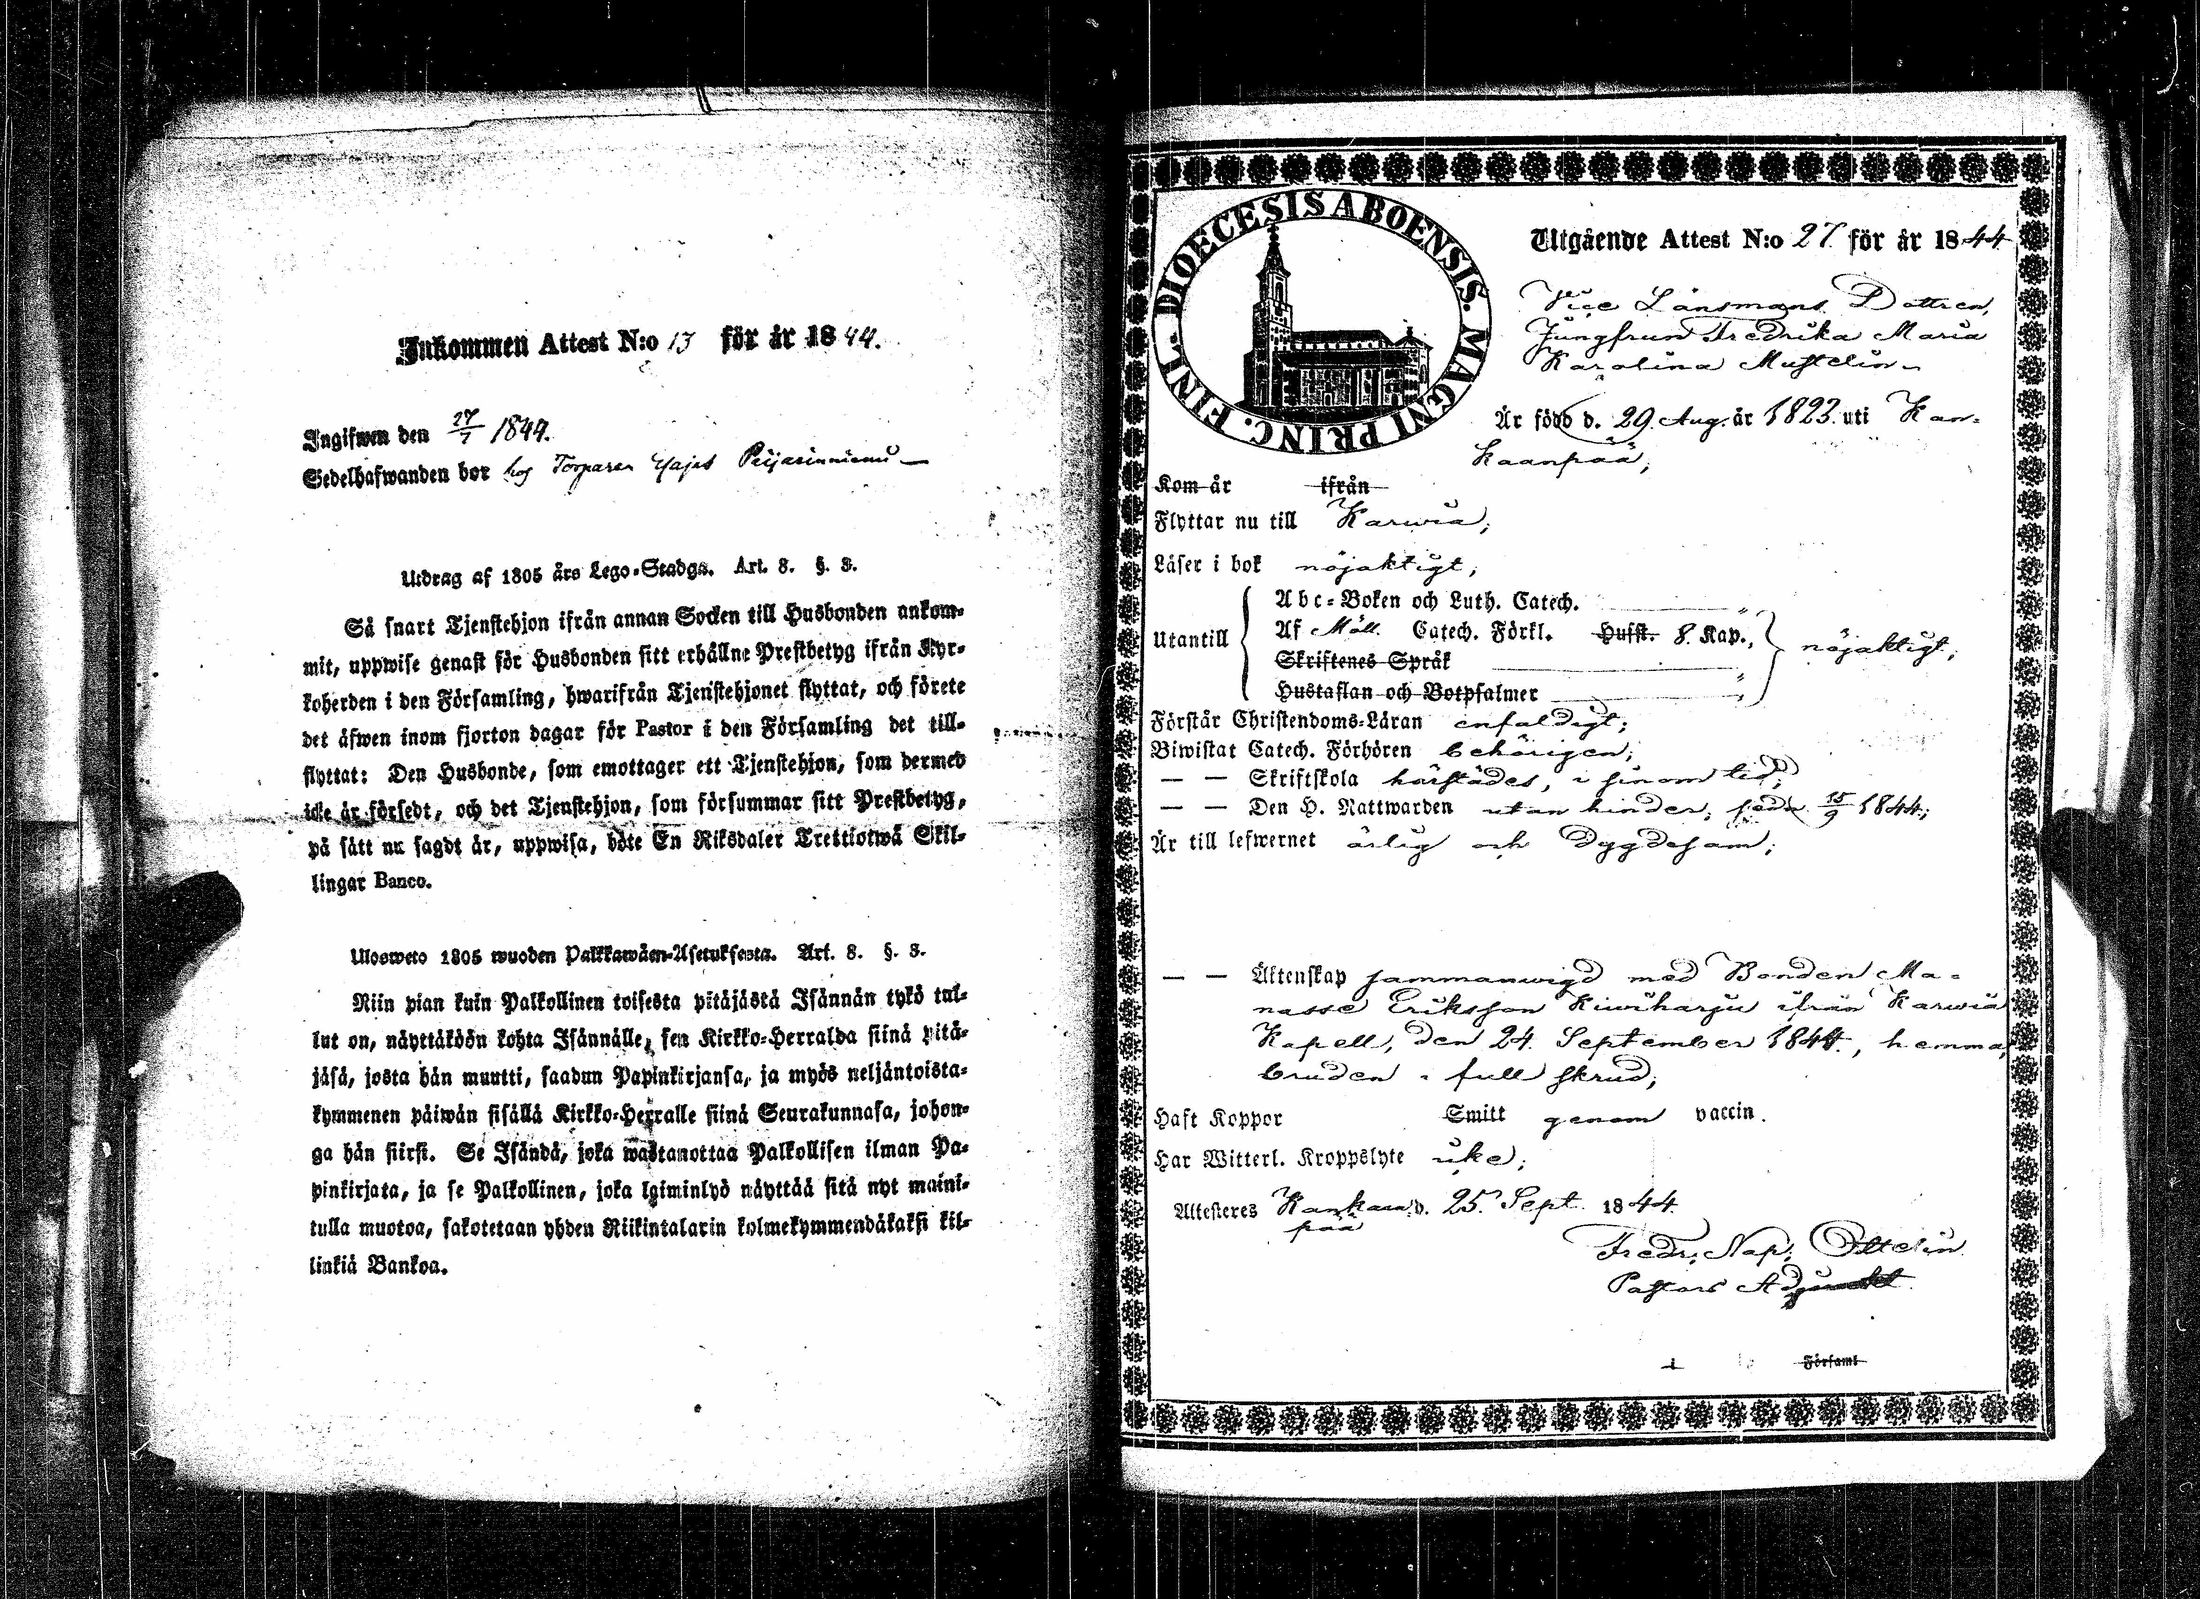 Inkommen Attest N:o 13 för år 1844.
Ingifwen den 27/7 1844.
Sedelhafwanden bor hos Torparen
Utdrag af 1805 års Lego-Stadga. Art. 8. §. 3.
Så snart Tjenstehjon ifrån annan Socken till Husbonden ankom-
mit, uppwise genast för Husbonden sitt erhållne Prestbetyg ifrån Kyr-
koherden i den Församling, hwarifrån Tjenstehjonet flyttat, och förete
det äfwen inom fjorton dagar för Pastor i den Församling det till-
flyttat: Den Husbonde, som emottager ett Tjenstehjon, som dermed
icke är försedt, och det Tjenstehjon, som försummar sitt Prestbetyg,
på sätt nu sagdt är, uppwisa, böte En Riksdaler Trettiotwå Skil-
lingar Banco.
Ulosweto 1805 wuoden Palkkawäen-Asetuksesta. Art. 8. §. 3.
Niin pian kuin Palkollinen toisesta pitäjästä Isännän tykö tul-
lut on, näyttäköön kohta Isännälle, sen Kirkko-Herralda siinä pitä-
jäsä, josta hän muutti, saadun Papinkirjansa, ja myös neljäntoista-
kymmenen päiwän sisällä Kirkko-Herralle siinä Seurakunnasa, johon-
ga hän siirsi. Se Isändä, joka wastanottaa Palkollisen ilman Pa-
pinkirjata, ja se Palkollinen, joka lyiminlyö näyttää sitä nyt maini-
tulla muotoa, sakotetaan yhden Riikintalarin kolmekymmendäkaksi kil-
linkiä Bankoa.
DIOECESIS ABOENSIS. MAGNI PRINC. FINL.
Utgående Attest N:o 27 för år 1844
Vice Länsmans Dottren,
Jungfrun Fredrika Maria
Karolina Mustelin
Är född d. 29. Aug. år 1823. uti Kan-
kaanpää;
Kom år ifrån
Flyttar nu till Karwia;
Läser i bok nöjaktigt;
Abc-Boken och Luth. Catech. "
Utantill Af Möll. Catech. Förkl. Husst. 8. Kap., nöjaktigt;
Skriftenes Språk "
Hustaflan och Botpsalmer "
Förstår Christendoms-Läran enfaldigt;
Biwistat Catech. Förhören behörigen;
— — Skriftskola härstädes, i sinom tid;
— — Den H. Nattwarden utan hinder, sedn. 15/9 1844;
Är till lefwernet ärlig och dygdesam;
— — Äktenskap sammanwigd med Bonden Ma-
nasse Eriksson Kiwiharju ifrån Karwia
Kapell, den 24. September 1844., hemma,
bruden i full skrud;
Haft Koppor Smitt genom vaccin.
Har Witterl. Kroppslyte icke;
Attesteres Kankaan- d. 25. Sept. 1844.
pää
Fredr. Nap. Ottelin
Pastors Adjunkt
i Församl